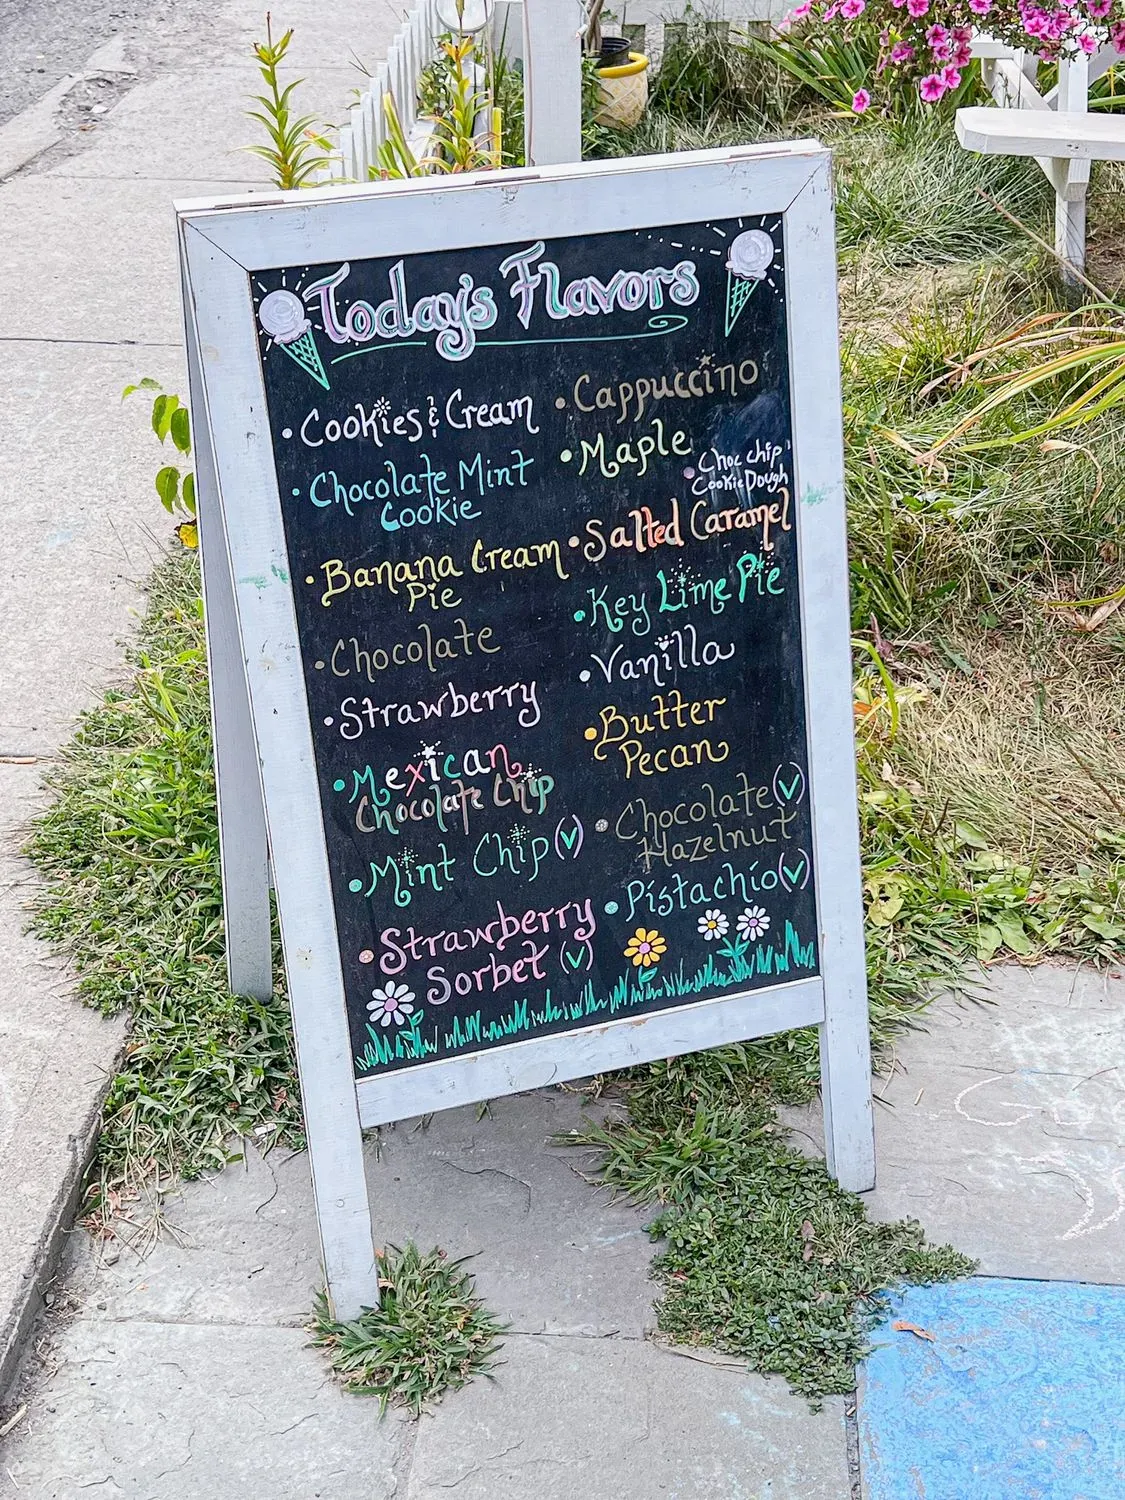 Today's Flavors
• Cookies & Cream
• Chocolate Mint
Cookie
• Banana Cream
Pie
• Chocolate
• Strawberry
• Mexican
Chocolate Chip
• Mint Chip (V)
• Strawberry
Sorbet (V)
• Cappuccino
• Maple
• Choc chip
Cookie Dough
• Salted Caramel
• Key Lime Pie
• Vanilla
• Butter
Pecan
• Chocolate (V)
Hazelnut
• Pistachio (V)